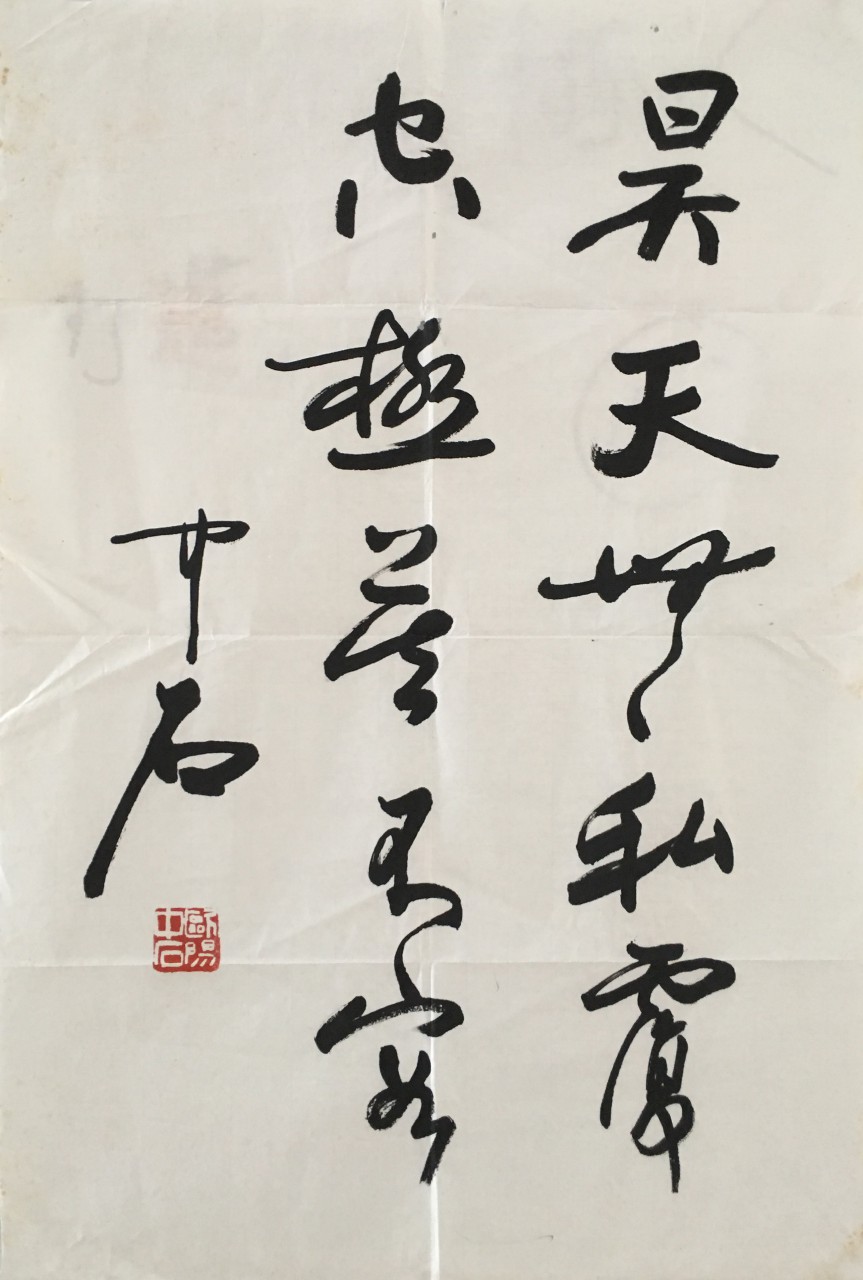 昊天無私覆
極莫
中石
歐陽
中石